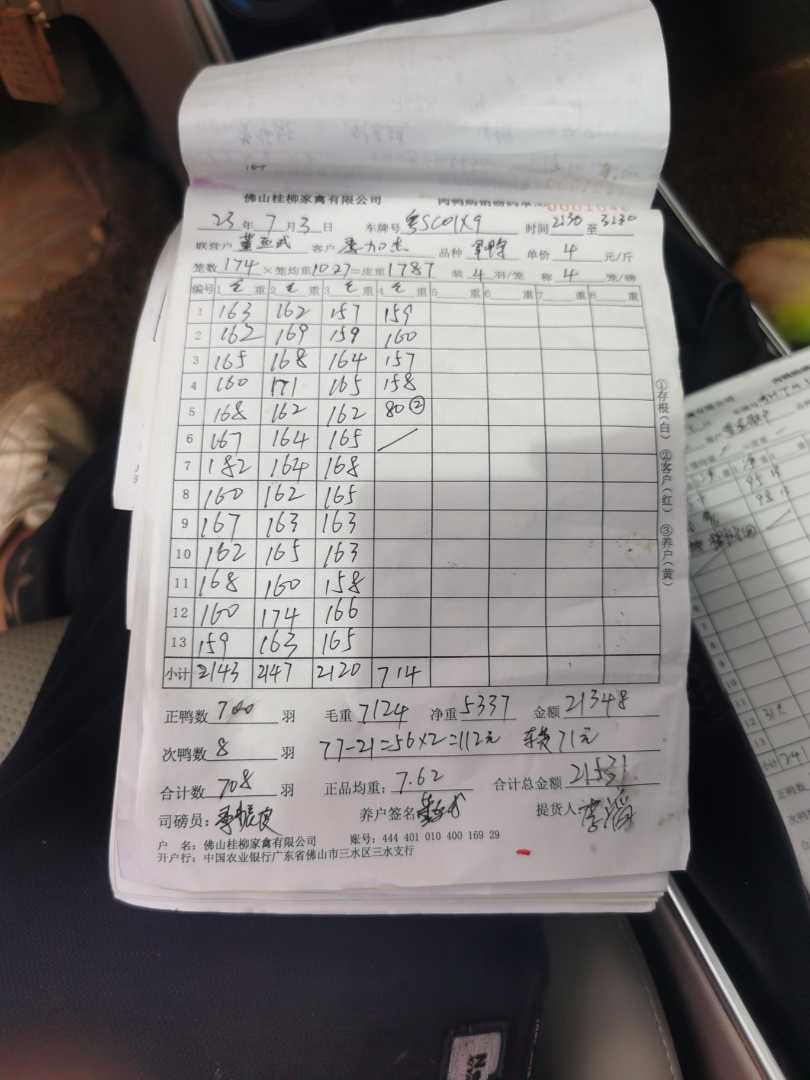 佛山桂柳家禽有限公司
23 年 7 月 3 日 车牌号 粤SC01X9 时间 2230 至 3230
联营户 客户 品种 单价 4 元/斤
笼数 174 ×笼均重 1027 =皮重 1787 装 4 羽/笼 称 4 笼/磅
编号 1 毛 重 2 毛 重 3 毛 重 4 毛 重 5 重 6 重 7 重 8 重
1 163 162 157 159
2 162 169 159 160
3 165 168 164 157
4 160 171 165 158
5 168 162 162 80②
6 167 164 165
7 182 164 168
8 160 162 165
9 167 163 163
10 162 165 163
11 168 160 158
12 160 174 166
13 159 163 165
小计 2143 2147 2120 714
①存根(白) ②客户(红) ③养户(黄)
正鸭数 700 羽 毛重 7124 净重 5337 金额 21348
次鸭数 8 羽 77-21=56×2=112元 71元
合计数 708 羽 正品均重: 7.62 合计总金额 21531
司磅员: 养户签名 提货人
户 名: 佛山桂柳家禽有限公司 账号: 444 401 010 400 169 29
开户行: 中国农业银行广东省佛山市三水区三水支行